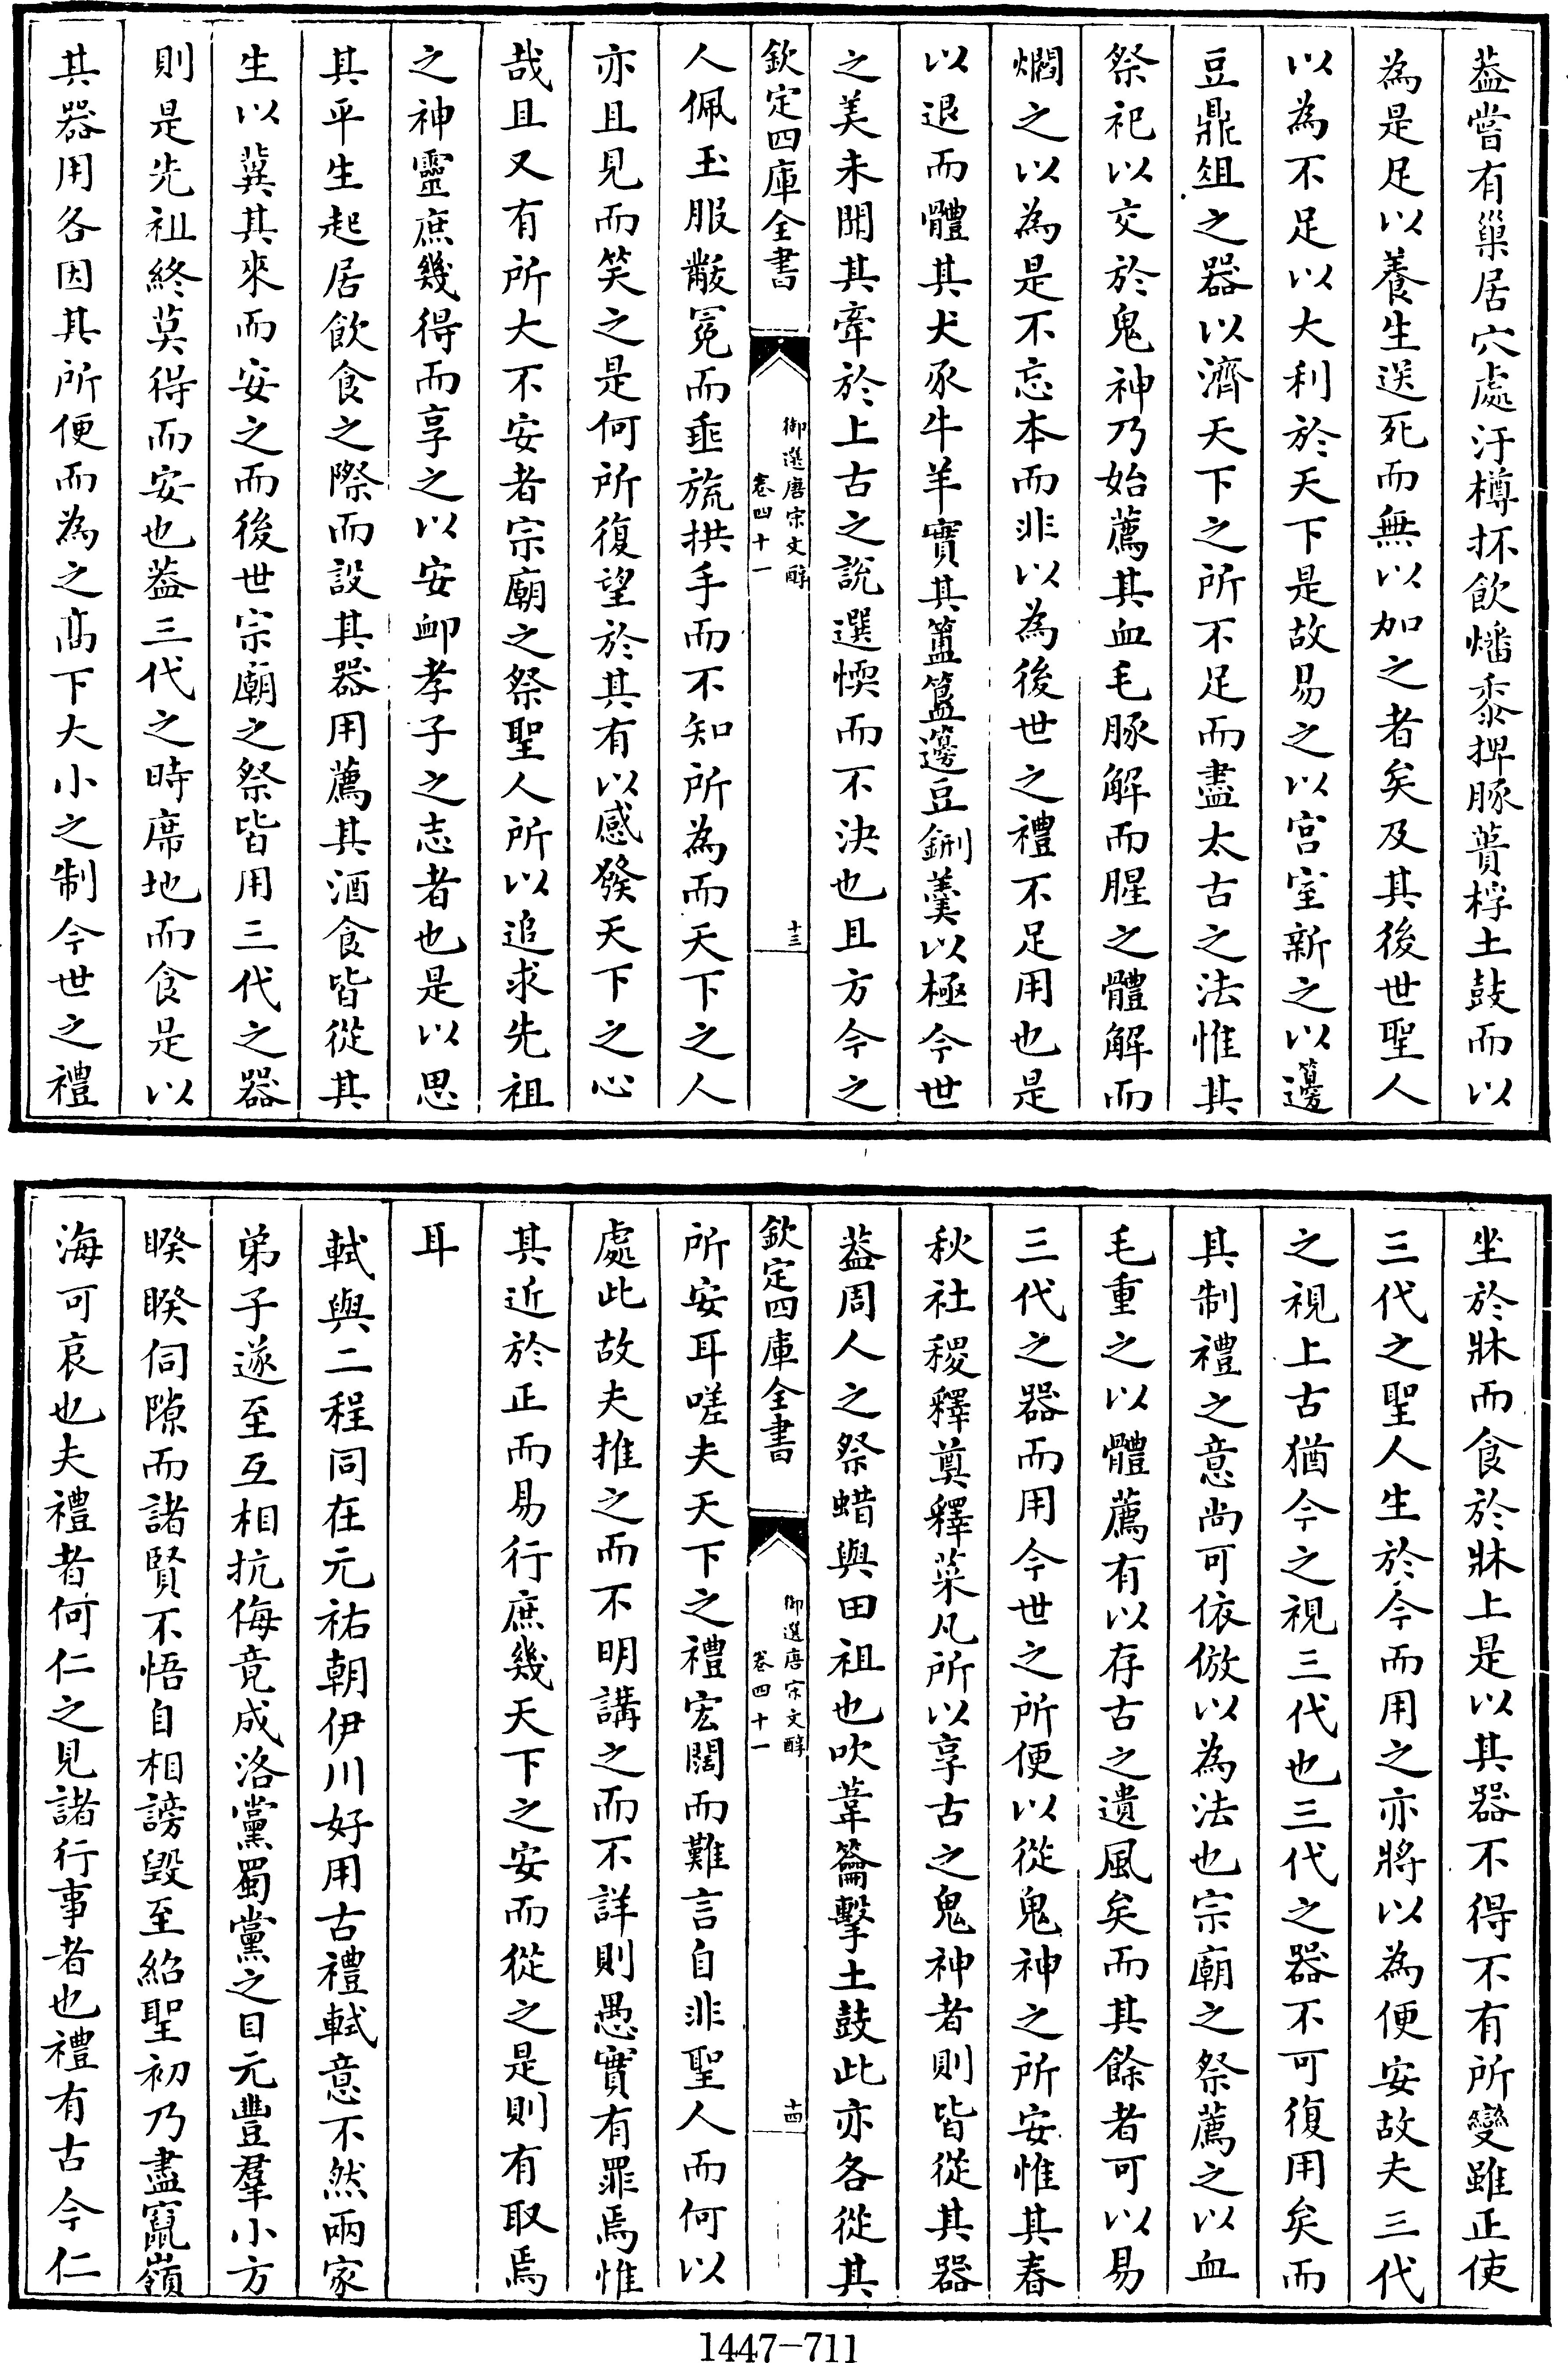 葢嘗有巢居穴處汙樽抔飲燔黍捭豚蕢桴土鼓而以
為是足以養生送死而無以加之者矣及其後世聖人
以為不足以大利於天下是故易之以宫室新之以籩
豆鼎俎之器以濟天下之所不足而盡太古之法惟其
祭祀以交於鬼神乃始薦其血毛豚解而腥之體解而
爓之以為是不忘本而非以為後世之禮不足用也是
以退而體其犬豕牛羊實其簠簋籩豆鉶羹以極今世
之美未聞其牽於上古之說選愞而不決也且方今之
欽定四庫全書
御選唐宋文醇
卷四十一
十三
人佩玉服黻冕而垂旒拱手而不知所為而天下之人
亦且見而笑之是何所復望於其有以感發天下之心
哉且又有所大不安者宗廟之祭聖人所以追求先祖
之神靈庶幾得而享之以安卹孝子之志者也是以思
其平生起居飲食之際而設其器用薦其酒食皆從其
生以冀其來而安之而後世宗廟之祭皆用三代之器
則是先祖終莫得而安也葢三代之時席地而食是以
其器用各因其所便而為之高下大小之制今世之禮
坐於牀而食於牀上是以其器不得不有所變雖正使
三代之聖人生於今而用之亦將以為便安故夫三代
之視上古猶今之視三代也三代之器不可復用矣而
其制禮之意尚可依倣以為法也宗廟之祭薦之以血
毛重之以體薦有以存古之遺風矣而其餘者可以易
三代之器而用今世之所便以從鬼神之所安惟其春
秋社稷釋奠釋菜凡所以享古之鬼神者則皆從其器
葢周人之祭蜡與田祖也吹葦籥擊土鼓此亦各從其
欽定四庫全書
御選唐宋文醇
卷四十一
十四
所安耳嗟夫天下之禮宏闊而難言自非聖人而何以
處此故夫推之而不明講之而不詳則愚實有罪焉惟
其近於正而易行庶幾天下之安而從之是則有取焉
耳
軾與二程同在元祐朝伊川好用古禮軾意不然兩家
弟子遂至互相抗侮竟成洛黨蜀黨之目元豐羣小方
睽睽伺隙而諸賢不悟自相謗毀至紹聖初乃盡竄嶺
海可哀也夫禮者何仁之見諸行事者也禮有古今仁
1447-711